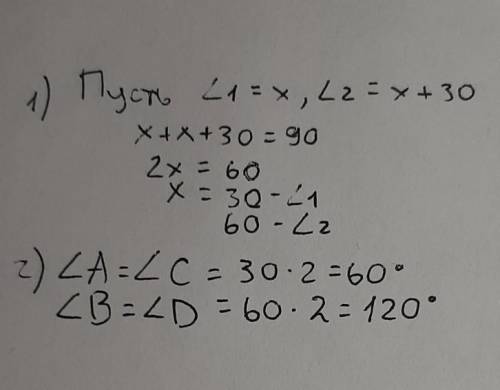 1) Пусть ∠1 = x, ∠2 = x + 30
x + x + 30 = 90
2x = 60
x = 30 - ∠1
60 - ∠2
2) ∠A = ∠C = 30 · 2 = 60°
∠B = ∠D = 60 · 2 = 120°